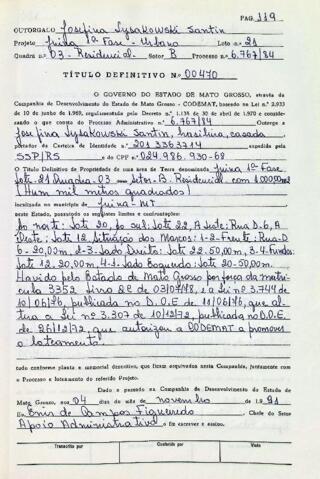 PÁG 119
OUTORGADO Josefina Lysakowski Santin
Projeto Juina 1ª Fase - Urbano Lote n.o 21
Quadra n.o 03 - Residencial. Setor B Processo n.o 6.767/84
TÍTULO DEFINITIVO N.o 00470
O GOVERNO DO ESTADO DE MATO GROSSO, através da
Companhia de Desenvolvimento do Estado de Mato Grosso - CODEMAT, baseado na Lei n.o 2.933
de 10 de junho de 1.969, regulamentado pelo Decreto n.o 1.138 de 30 de abril de 1.970 e considerando
o que consta do Processo Administrativo n.o 6.767/84 Outorga a
Josefina Lysakowski Santin, brasileira, casada
portador da Carteira de Identidade n.o 2013363314 expedida pela
SSP/RS e do CPF n.o 024.986.930-68
O Título Definitivo de Propriedade de uma área de Terra denominada Juina 1ª Fase
Lote-21 Quadra-03 - Setor-B. Residencial. com 1.000,00m2
(Hum mil metros quadrados)
localizada no município de Juina-MT
neste Estado, passando os seguintes limites e confrontações:
Ao norte: Lote 20, ao sul: Lote 22, A Leste: Rua D-6, A
Oeste: Lote 12. Situação dos Marcos: 1-2-Frente: Rua-D
6-20,00m, 2-3-Lado Direito: Lote 22-50,00m, 3-4-Fundos
Lote 12.20.00m. 4-1-Lado Esquerdo: Lote 20-50.00m.
Havido pelo Estado de Mato Grosso por força da matri-
cula 3352 Livro 2C de 03/07/78, e a Lei nº 3.744 de
10/06/76, publicada no D.O.E de 11/06/76, que al-
tera a Lei nº 3.307 de 10/12/72, publicada no D.O.E.
de 26/12/72, que autorizou a CODEMAT a promover
o loteamento.
tudo conforme planta e memorial descritivo, que ficam arquivados nesta Companhia, juntamente com
o Processo e loteamento do referido Projeto.
Dado e passado na Companhia de Desenvolvimento do Estado de
Mato Grosso, aos 04 dias do mês de novembro de 1.991
Eu Enis de Campos Figueiredo Chefe do Setor
Apoio Administrativo o fiz escrever e assino.
Transcrito por Conferido por Visto